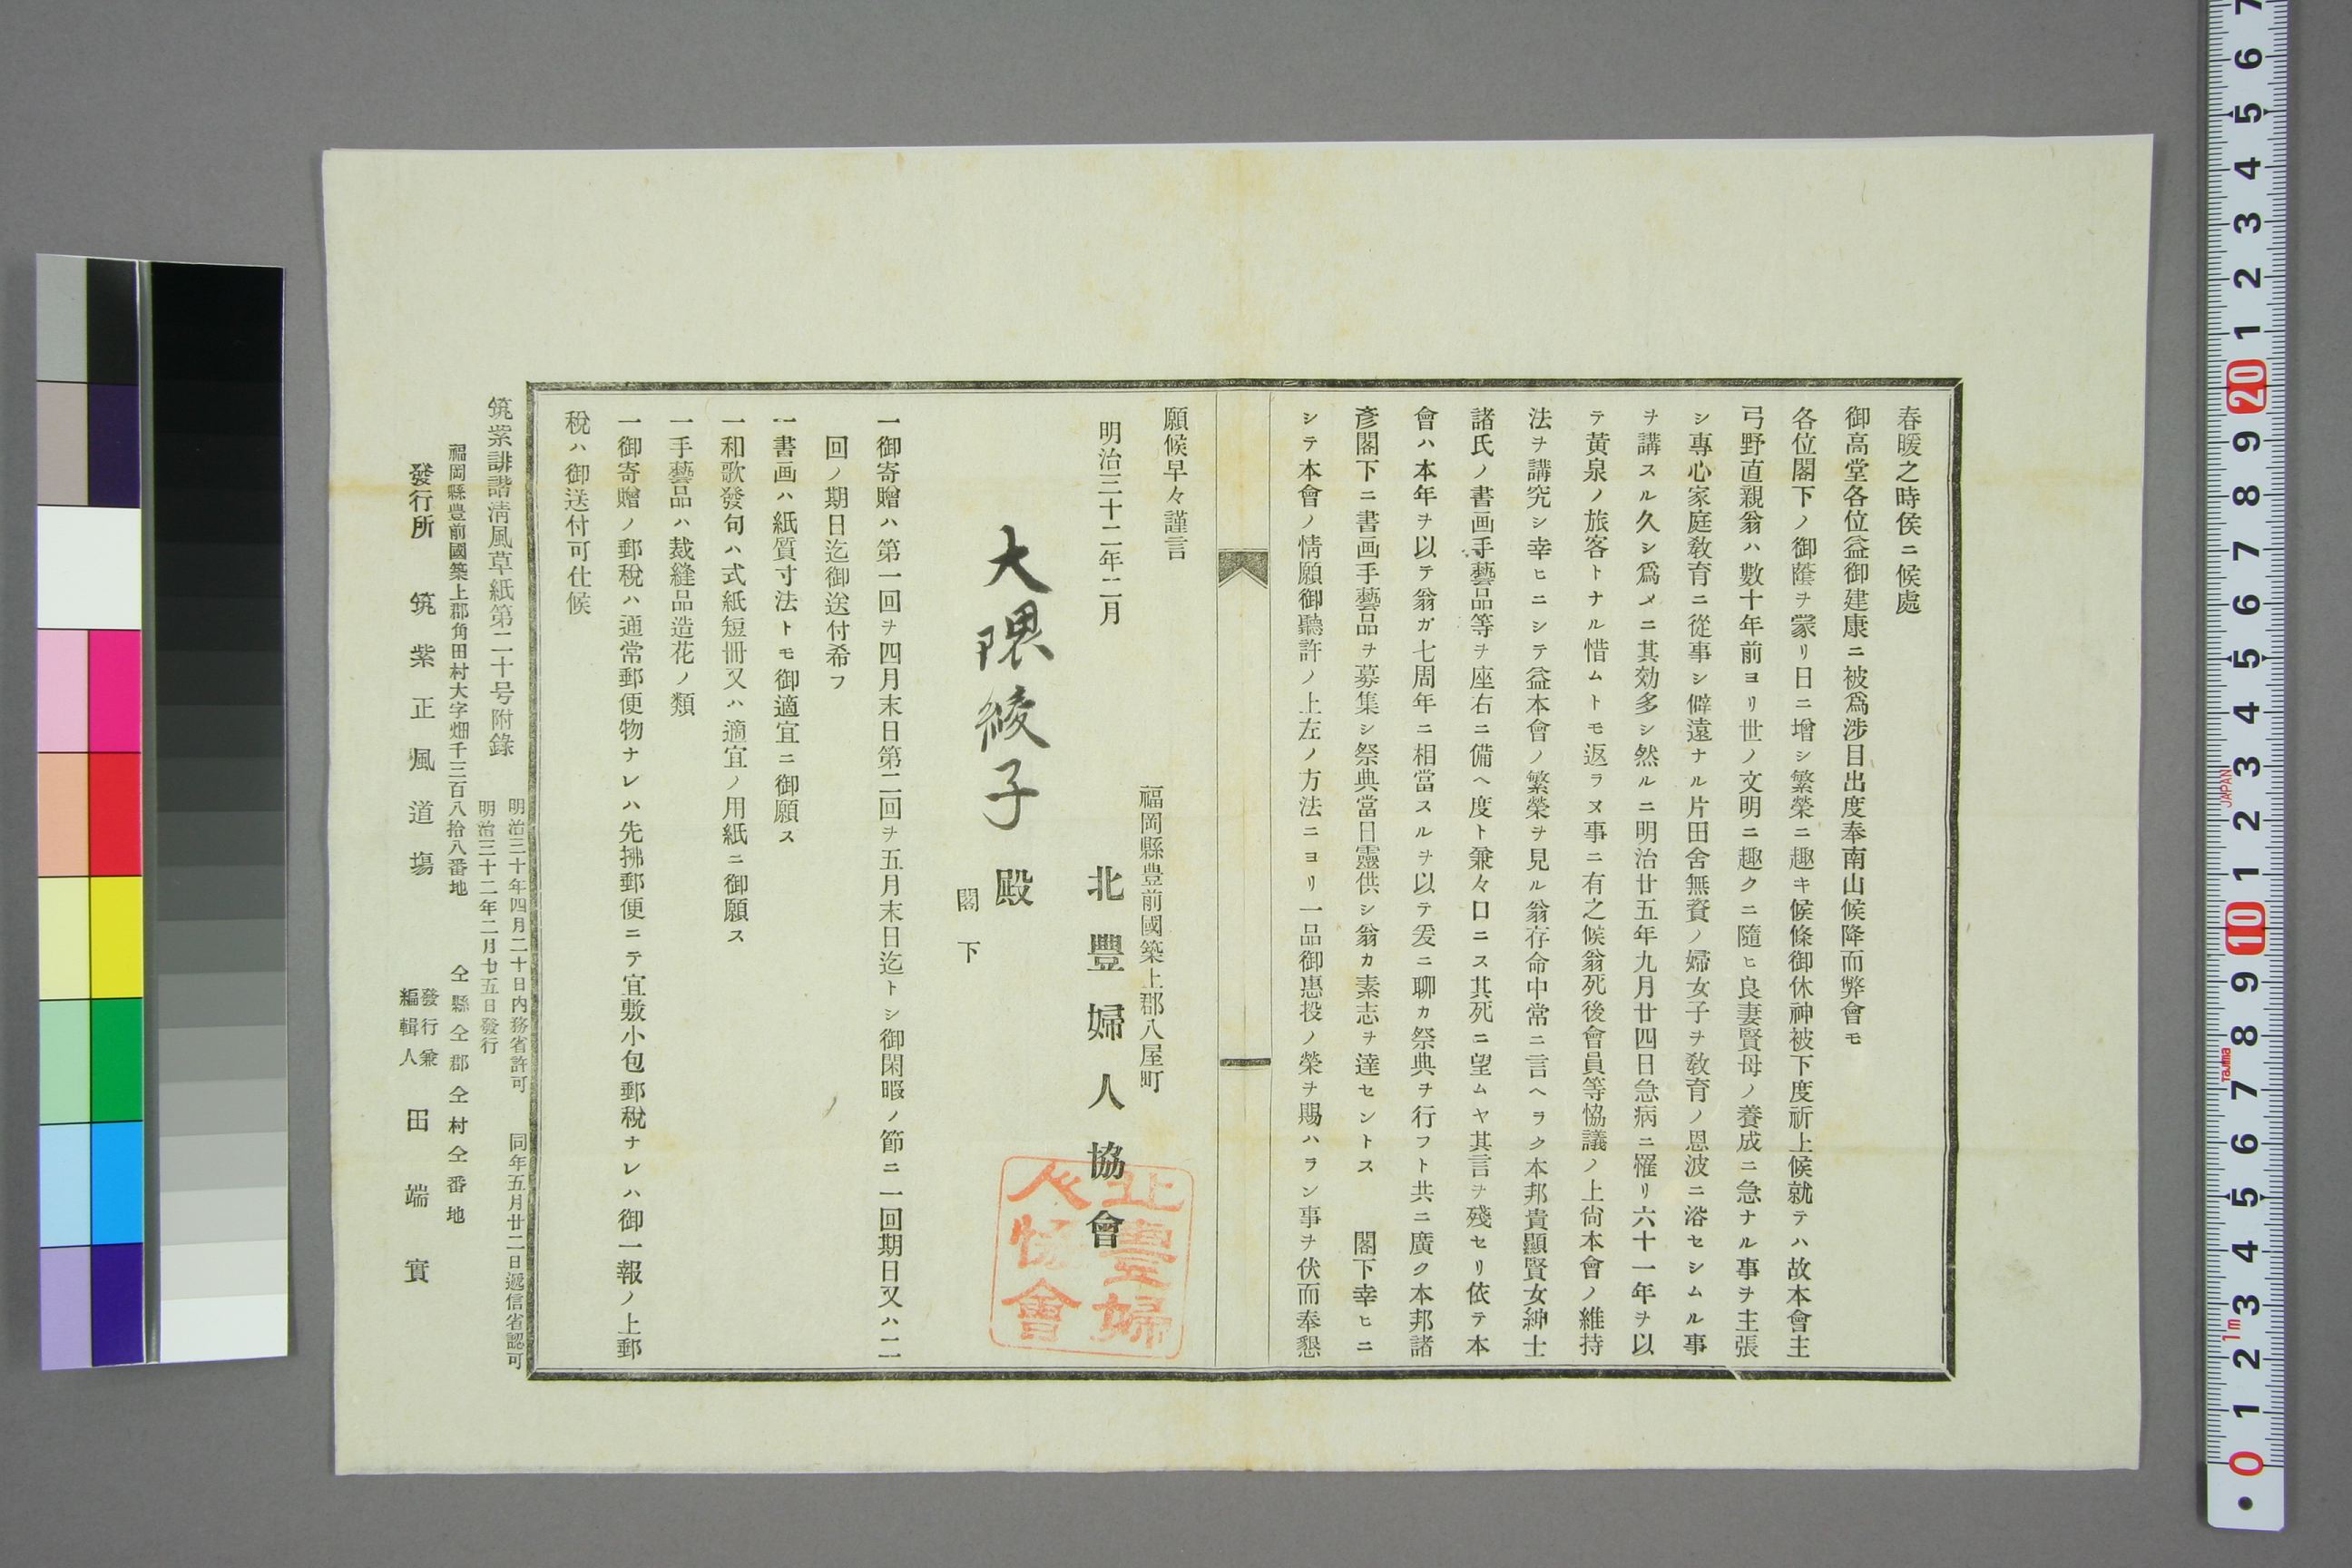 春暖之時侯ニ候處
御高堂各位益御建康ニ被爲渉目出度奉南山候降而弊會モ
各位閣下ノ御蔭ヲ蒙リ日ニ增シ繁榮ニ趣キ候條御休神被下度祈上候就テハ故本會主
弓野直親翁ハ數十年前ヨリ世ノ文明ニ趣クニ隨ヒ良妻賢母ノ養成ニ急ナル事ヲ主張
シ專心家庭敎育ニ從事シ僻遠ナル片田舍無資ノ婦女子ヲ敎育ノ恩波ニ浴セシムル事
ヲ講スル久シ爲メニ其効多シ然ルニ明治廿五年九月廿四日急病ニ罹リ六十一年ヲ以
テ黃泉ノ旅客トナル惜ムトモ返ラヌ事ニ有之候翁死後會員等恊議ノ上尙本會ノ維持
法ヲ講究シ幸ヒニシテ益本會ノ繁榮ヲ見ル翁存命中常ニ言ヘラク本邦貴顯賢女紳士
諸氏ノ書画手藝品等ヲ座右ニ備ヘ度ト兼々口ニス其死ニ望ムヤ其言ヲ殘セリ依テ本
會ハ本年ヲ以テ翁ガ七周年ニ相當スルヲ以テ爰ニ聊カ祭典ヲ行フト共ニ廣ク本邦諸
彥閣下ニ書画手藝品ヲ募集シ祭典當日靈供シ翁カ素志ヲ達セントス　閣下幸ヒニ
シテ本會ノ情願御聽許ノ上左ノ方法ニヨリ一品御惠投ノ榮ヲ賜ハラン事ヲ伏而奉懇
願候早々謹言
福岡縣豊前國築上郡八屋町
明治三十二年二月
北豐婦人協會
北豊婦人協會
大隈綾子殿
閣下
一御寄贈ハ第一回ヲ四月末日第二回ヲ五月末日迄トシ御閑暇ノ節ニ一回期日又ハ二
回ノ期日迄御送付希フ
一書画ハ紙質寸法トモ御適宜ニ御願ス
一和歌發句ハ式紙短冊又ハ適宜ノ用紙ニ御願ス
一手藝品ハ裁縫品造花ノ類
一御寄贈ノ郵稅ハ通常郵便物ナレハ先拂郵便ニテ宜敷小包郵稅ナレハ御一報ノ上郵
稅ハ御送付可仕候
筑紫誹諧淸風草紙第二十号附錄
明治三十年四月二十日内務省許可　同年五月廿二日遞信省認可
明治三十二年二月廿五日發行
福岡縣豊前國築上郡角田村大字畑千三百八拾八番地
發行所　筑紫正風道塲
仝縣仝郡仝村仝番地
發行兼
編輯人
田端實